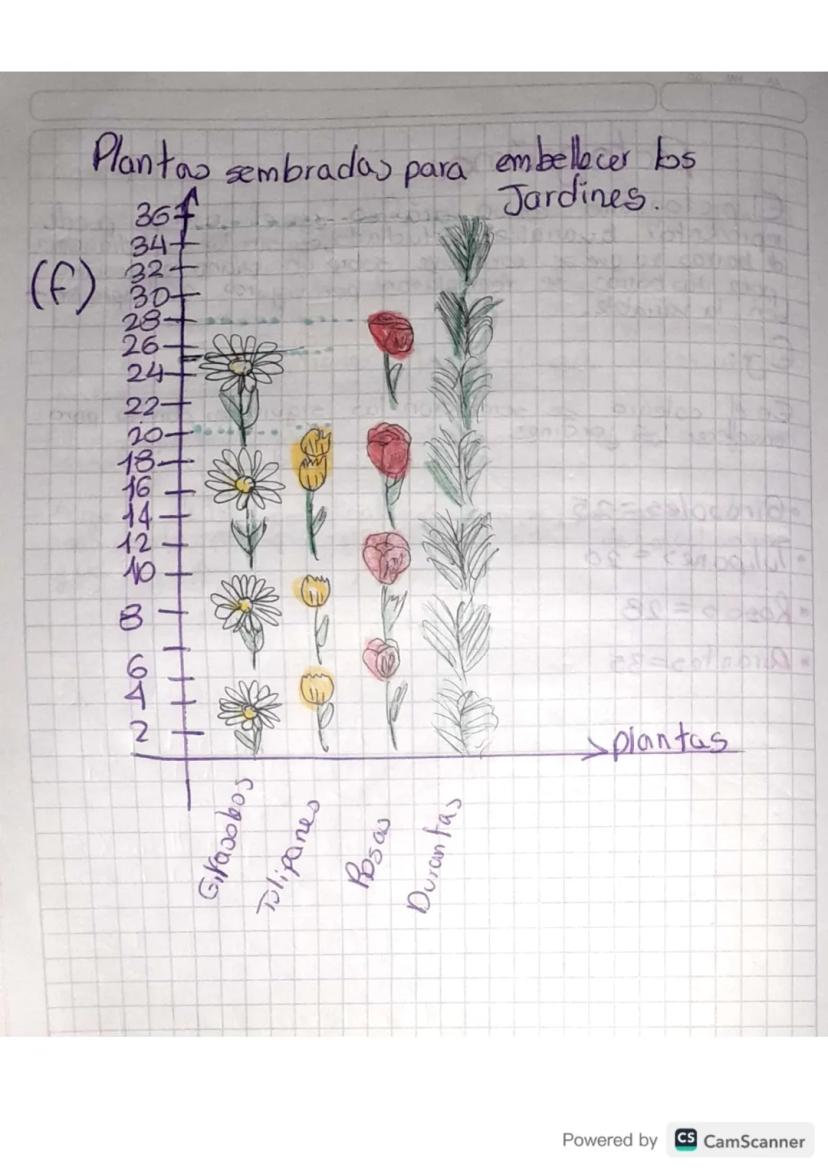 Plantas sembradas para embellecer los
Jardines.
(f)
36
34
32
30
28
26
24
22
20
18
16
14
12
10
8
6
4
2
plantas
Girasoles
Tulipanes
Rosas
Durantas
Powered by CS CamScanner